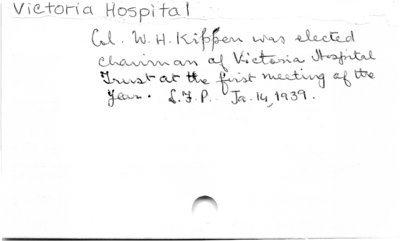 Victoria Hospital
Col. W. H. Kippen was elected
chairman of Victoria Hospital
Trust at the first meeting of the
year. L.F.P. Ja. 14, 1939.